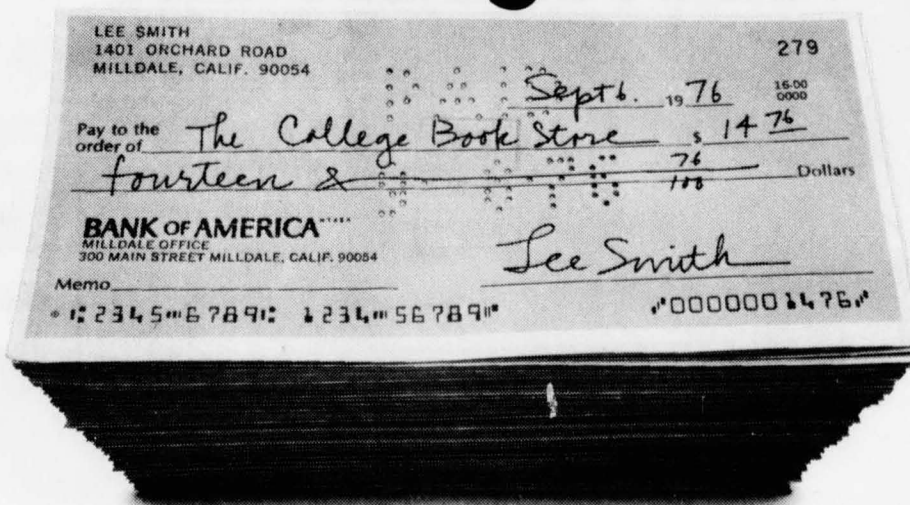 LEE SMITH
1401 ORCHARD ROAD
MILLDALE, CALIF. 90054
279
Sept 6. 1976
16-00
0000
Pay to the
order of The College Book Store $ 14 76
fourteen & 76/100 Dollars
BANK OF AMERICA
MILLDALE OFFICE
300 MAIN STREET MILLDALE, CALIF. 90054
Lee Smith
Memo
⑆2345⑈6789⑆ 1234⑈56789⑈ ⑈0000001476⑈